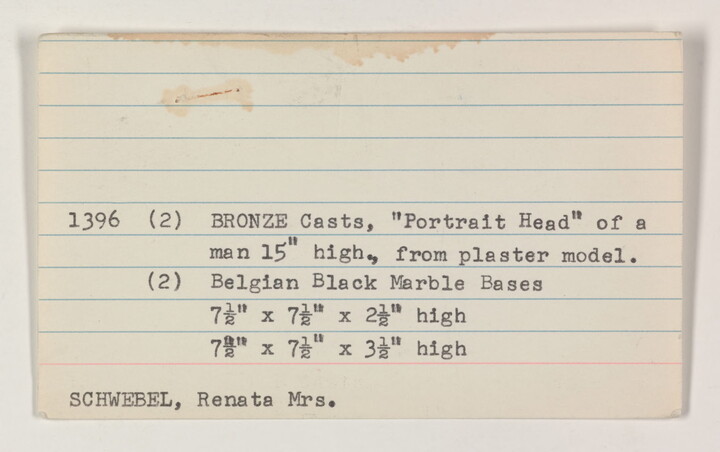 1396 (2) BRONZE Casts, "Portrait Head" of a
man 15" high., from plaster model.
(2) Belgian Black Marble Bases
7½" x 7½" x 2½" high
7½" x 7½" x 3½" high
SCHWEBEL, Renata Mrs.